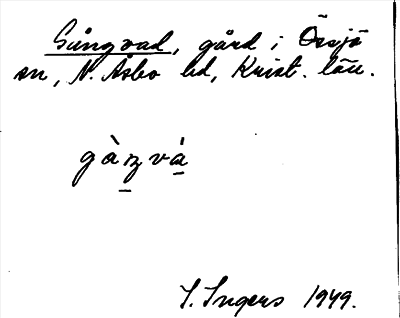 Gångvad, gård i Össjö
sn, N. Åsbo hd, Krist. län.
gàŋvá
I. Ingers 1949.